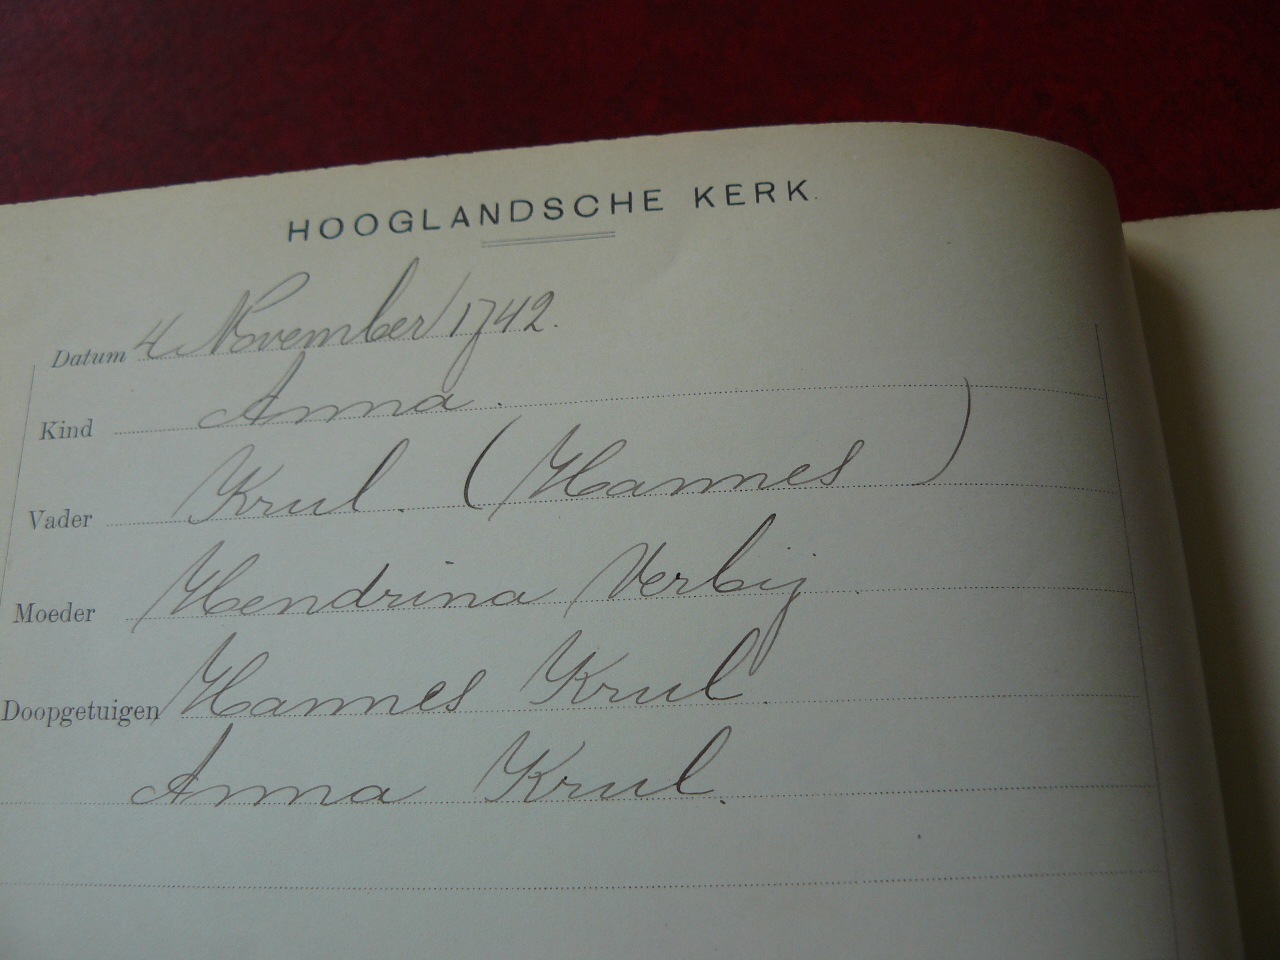 HOOGLANDSCHE KERK.
Datum 4 November 1742.
Kind Anna.
Vader Krul. (Hannes)
Moeder Hendrina Verbij.
Doopgetuigen Hannes Krul.
Anna Krul.